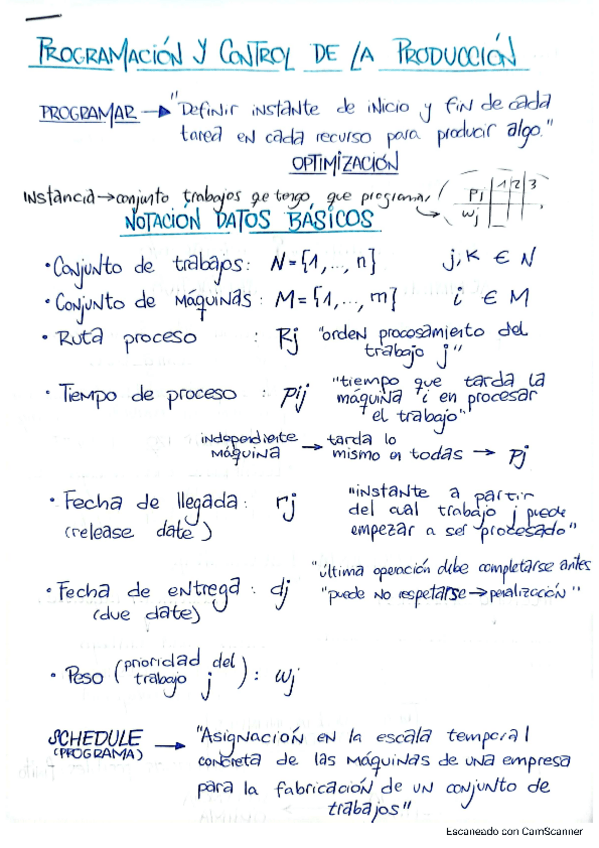 PROGRAMACIÓN Y CONTROL DE LA PRODUCCIÓN
PROGRAMAR → "Definir instante de inicio y fin de cada
tarea en cada recurso para producir algo."
OPTIMIZACIÓN
Instancia → conjunto trabajos qe tengo, que programar ( Pj | 1 | 2 | 3
wj
NOTACIÓN DATOS BÁSICOS
• Conjunto de trabajos: N = {1, ..., n} j, k ∈ N
• Conjunto de Máquinas: M = {1, ..., m} i ∈ M
• Ruta proceso : Rj "orden procosamiento del
trabajo j"
• Tiempo de proceso : Pij "tiempo que tarda la
máquina i en procesar
el trabajo"
independiente
máquina → tarda lo
mismo en todas → Pj
• Fecha de llegada: rj "instante a partir
(release date) del cual trabajo j puede
empezar a ser procesado"
"última operación debe completarse antes
• Fecha de entrega: dj "puede no respetarse → penalización"
(due date)
• Peso (prioridad del
trabajo j): wj
SCHEDULE
(PROGRAMA) → "Asignación en la escala temporal
concreta de las máquinas de una empresa
para la fabricación de un conjunto de
trabajos"
Escaneado con CamScanner